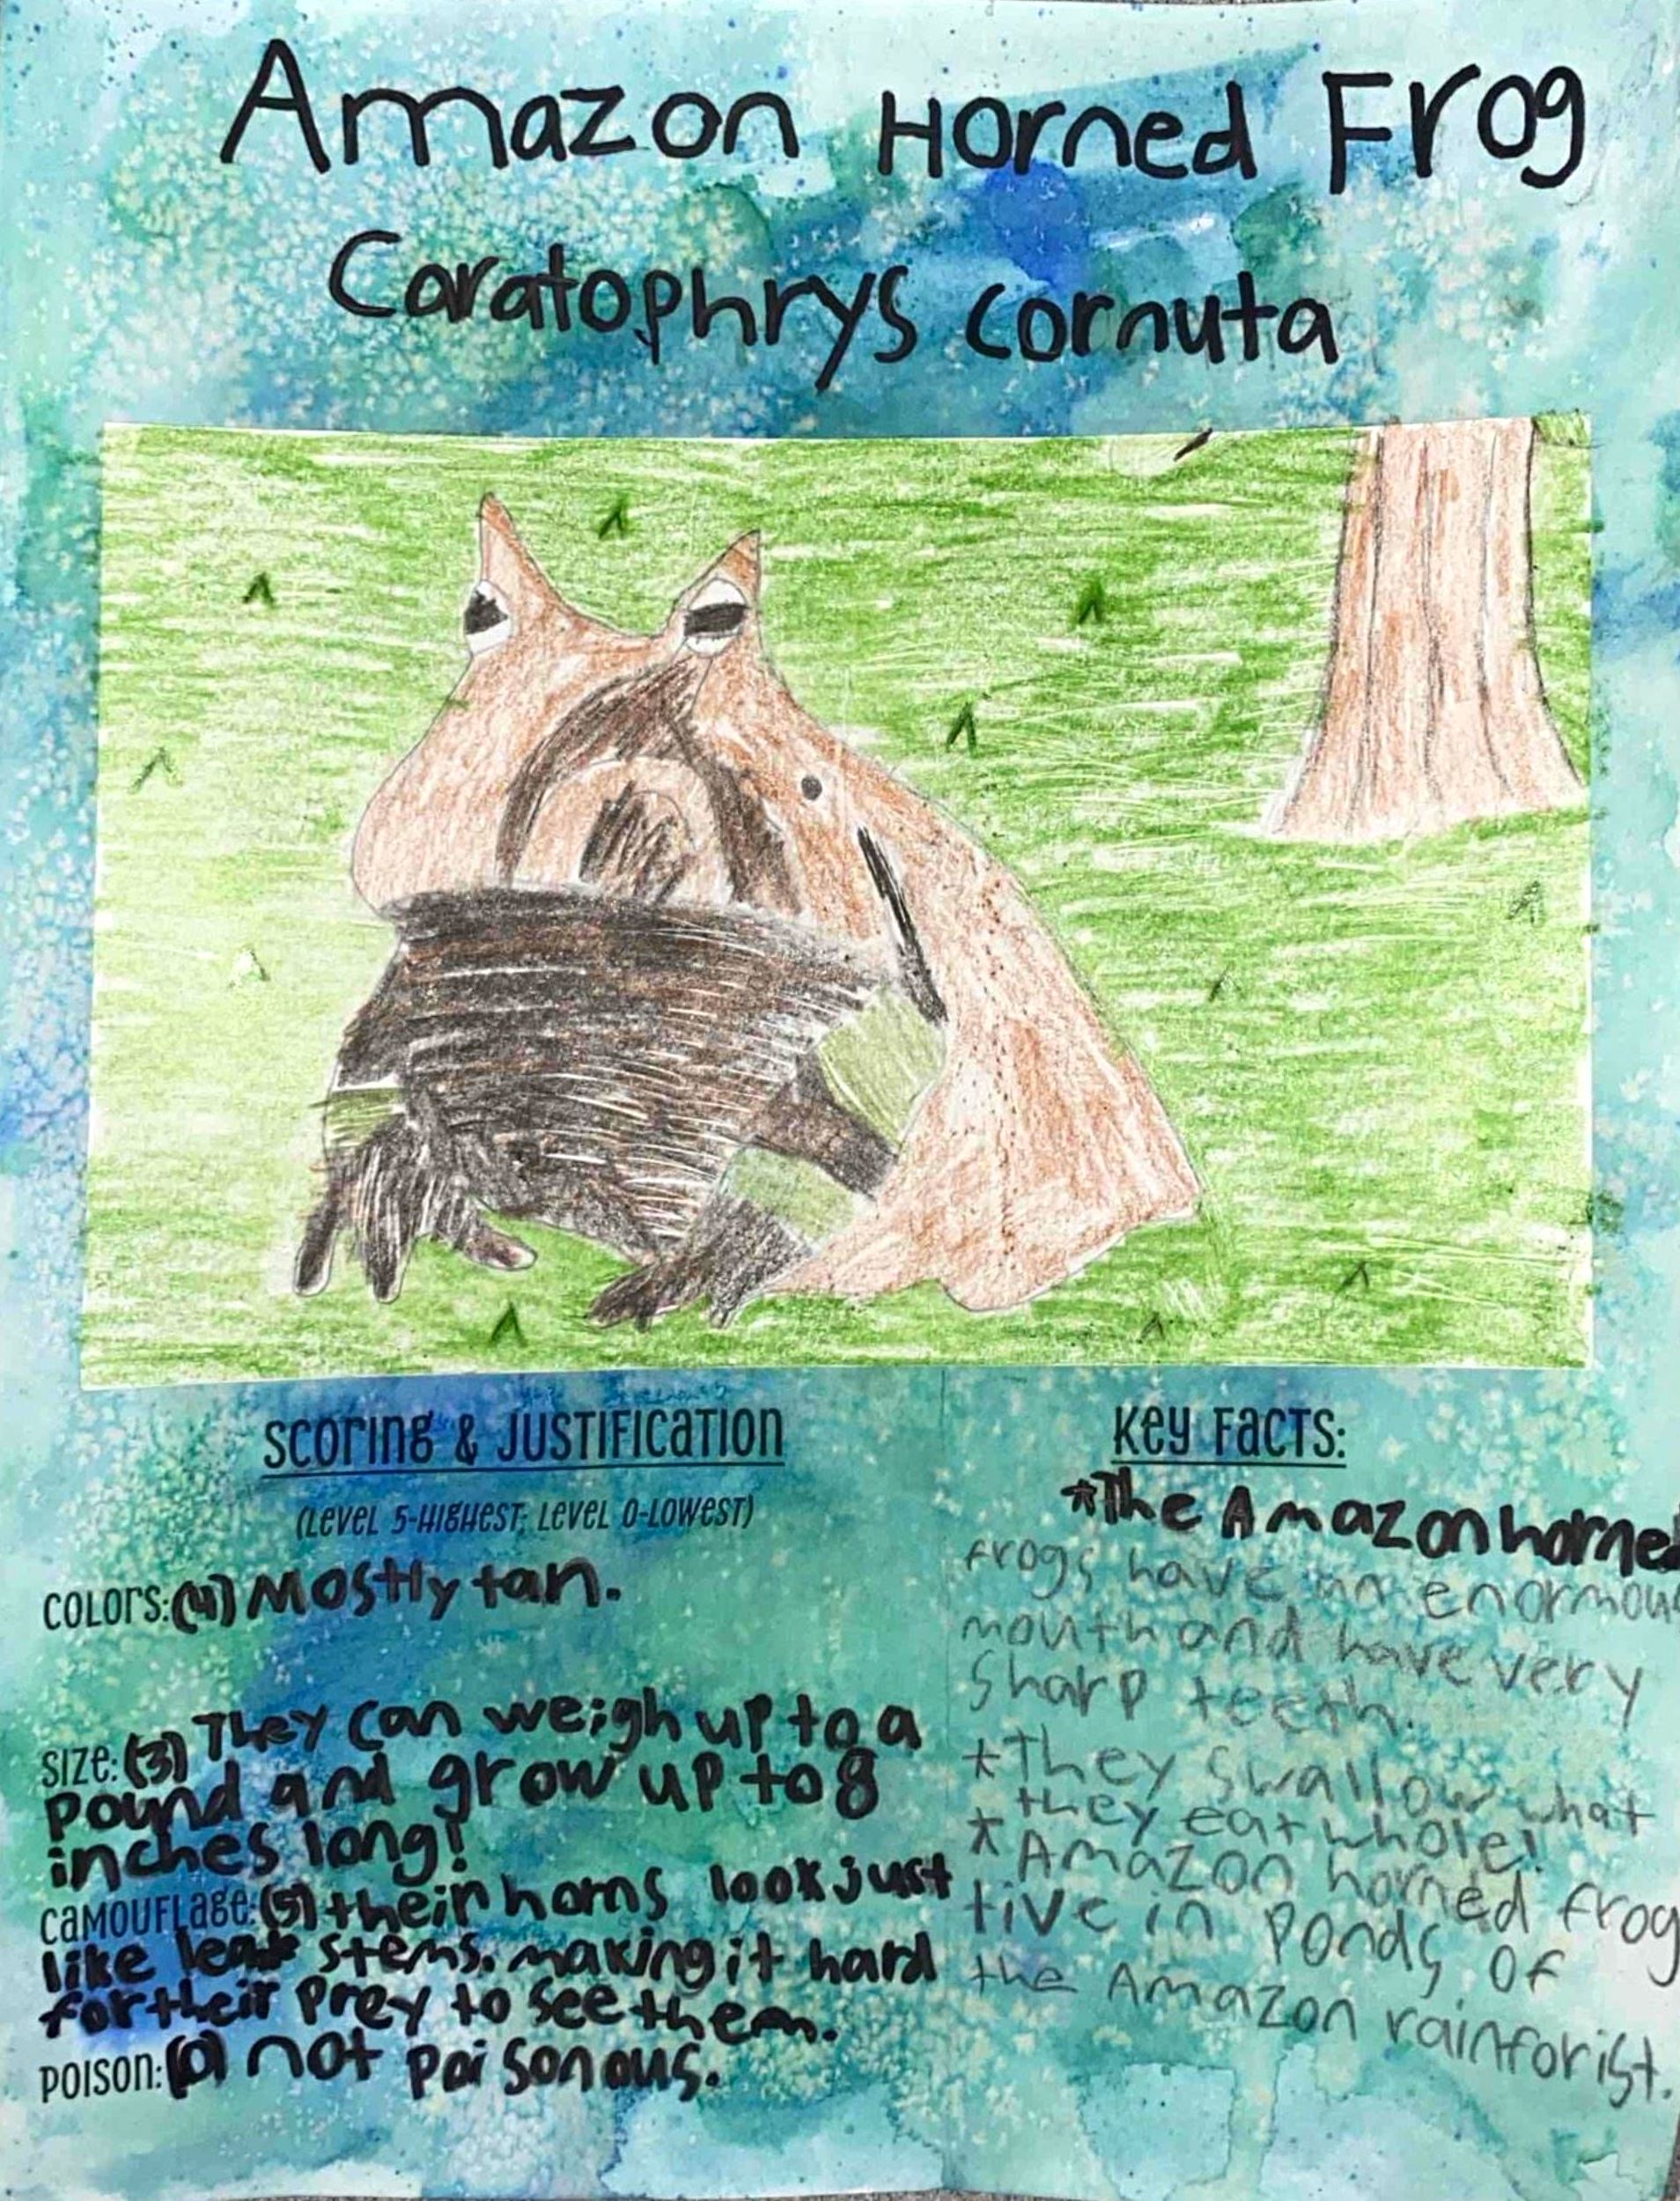 Amazon Horned Frog
Caratophrys cornuta
Scoring & Justification
(Level 5-Highest; Level 0-Lowest)
Colors: (4) Mostly tan.
Size: (3) They can weigh up to a
pound and grow up to 8
inches long!
Camouflage: (5) their horns look just
like leaf stems. making it hard
for their prey to see them.
Poison: (0) not poisonous.
Key Facts:
*The Amazon horned
frogs have an enormous
mouth and have very
sharp teeth.
*They swallow what
they eat whole!
*Amazon horned frog
live in ponds of
the Amazon rainforist.